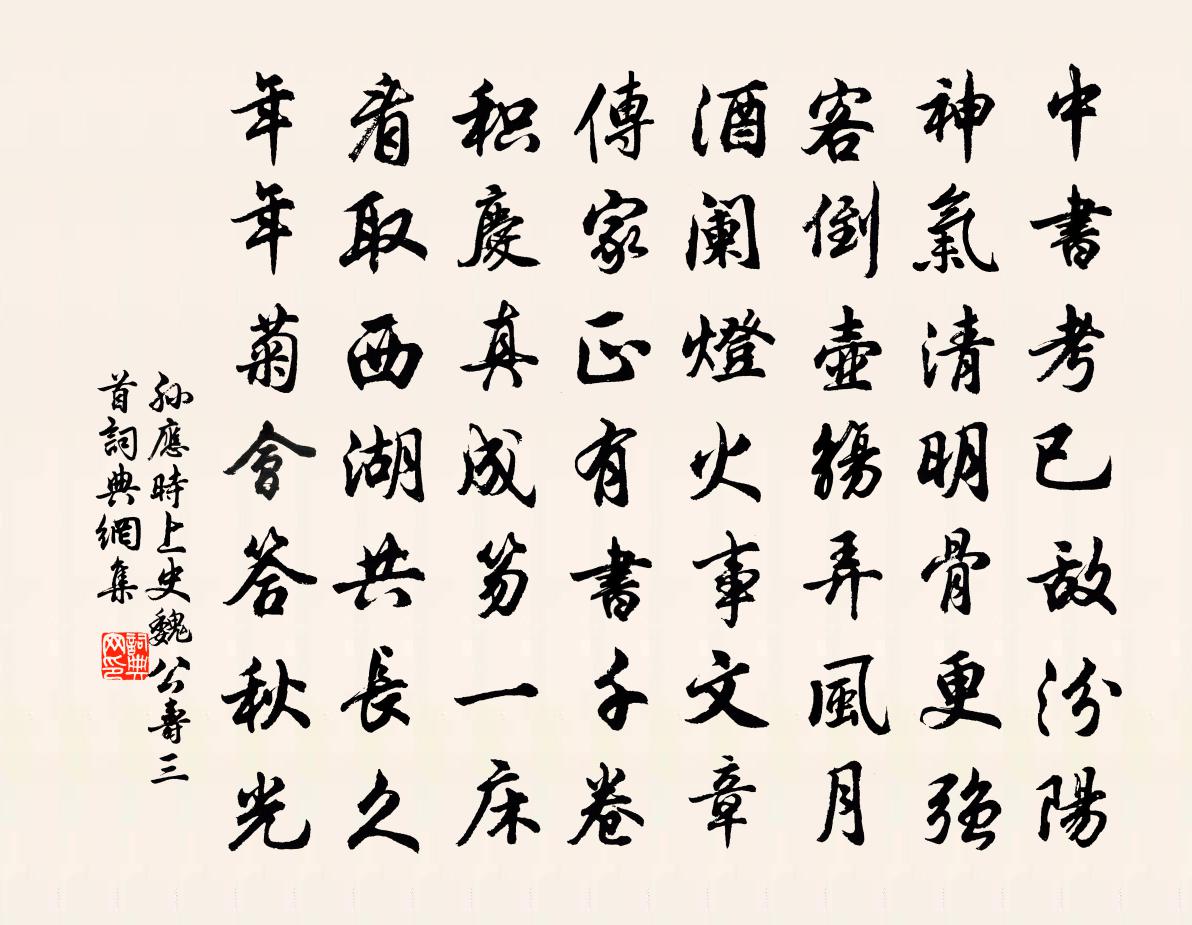 中書考已敵汾陽
神氣清明骨更强
客倒壺觴弄風月
酒闌燈火事文章
傳家正有書千卷
积慶真成笏一床
看取西湖共長久
年年菊會答秋光
孙應時上史魏公壽三
首詞典網集
詞典网印